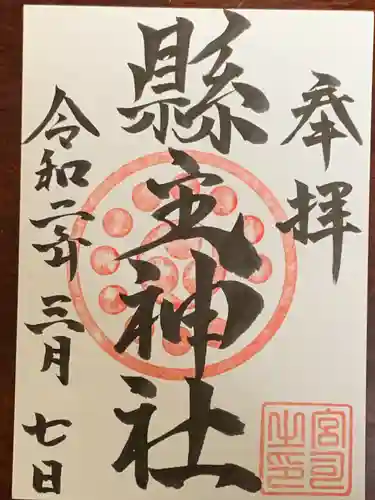 奉拝
縣主神社
令和二年三月七日
宮司之印